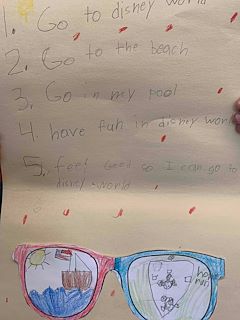 1. Go to disney world
2. Go to the beach
3. Go in my pool
4. have fun in disney worl
5. feel Good so I can go to
disney world